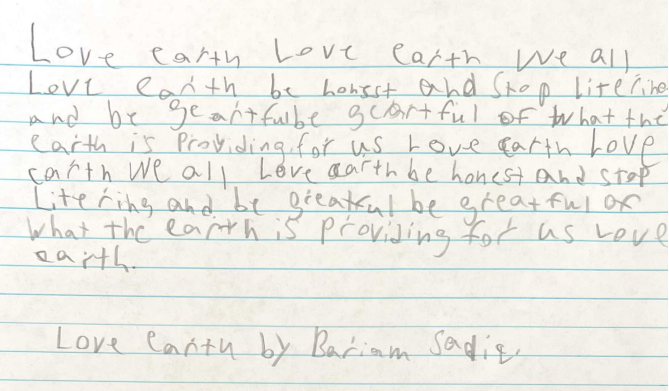 Love earth Love earth we all
Love earth be honest and stop litering
and be geartfulbe geartful of what the
earth is Providing for us Love earth Love
earth We all Love earth be honest and stop
Litering and be greatful be greatful of
what the earth is Providing for us Love
earth.
Love earth by Bariam Sadiq.